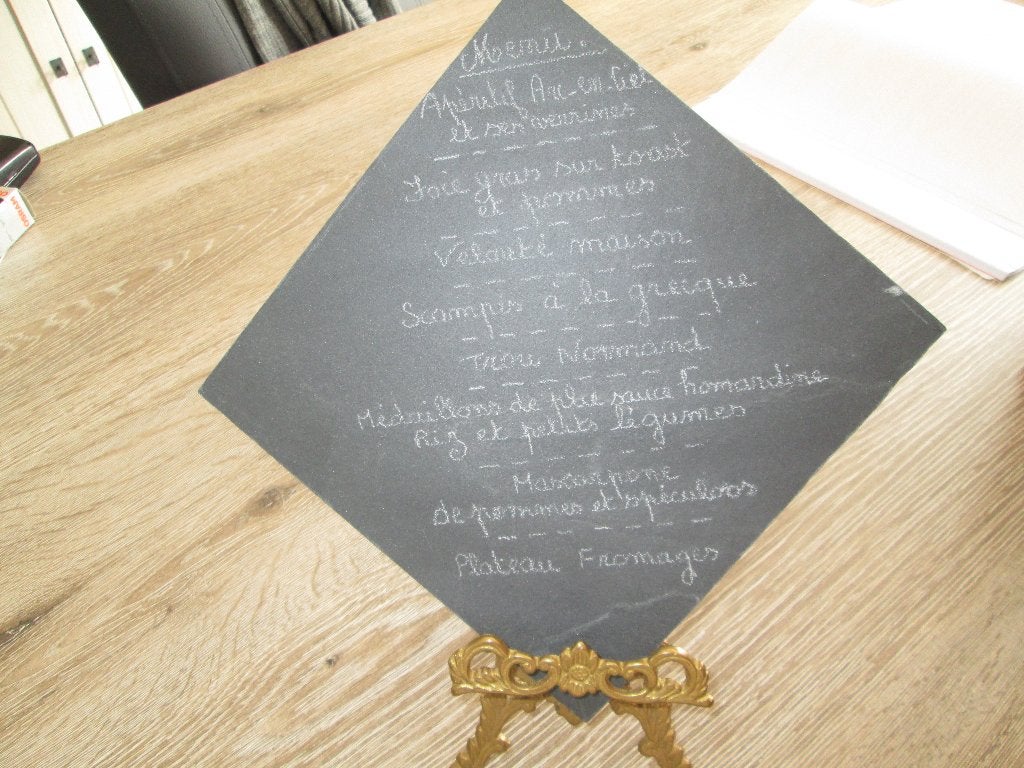 Menu.
Apéritif Arc-en-Ciel
et ses verrines
Foie gras sur toast
et pommes
Velouté maison
Scampis à la grecque
Trou Normand
Médaillons de plie sauce homardine
Riz et petits légumes
Mascarpone
de pommes et spéculoos
Plateau Fromages
OSRAM